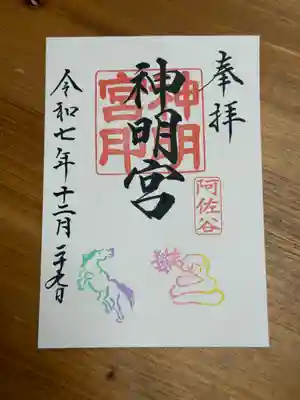 奉拝
阿佐谷
神明宮
神明
宮印
令和七年十二月二十九日